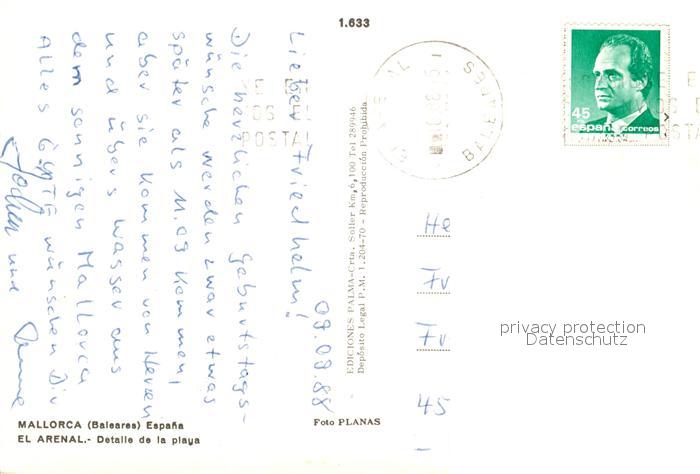 1.633
45
españa correos
BALEARES
POSTAL
09.09.88
Lieber Friedhelm!
Die herzlichen Geburtstags-
wünsche werden zwar etwas
später als 11.09 kommen,
aber sie kommen von Herzen
und übers Wasser aus
dem sonnigen Mallorca
Alles Gute wünschen Dir
Jochen und
EDICIONES PALMA-Crta. Soller Km, 6,100 Tel 289946
Depósito Legal P.M. 1.204-70 - Reproducción Prohibida.
He
Fr
Fr
45
privacy protection
Datenschutz
MALLORCA (Baleares) España
EL ARENAL.- Detalle de la playa
Foto PLANAS